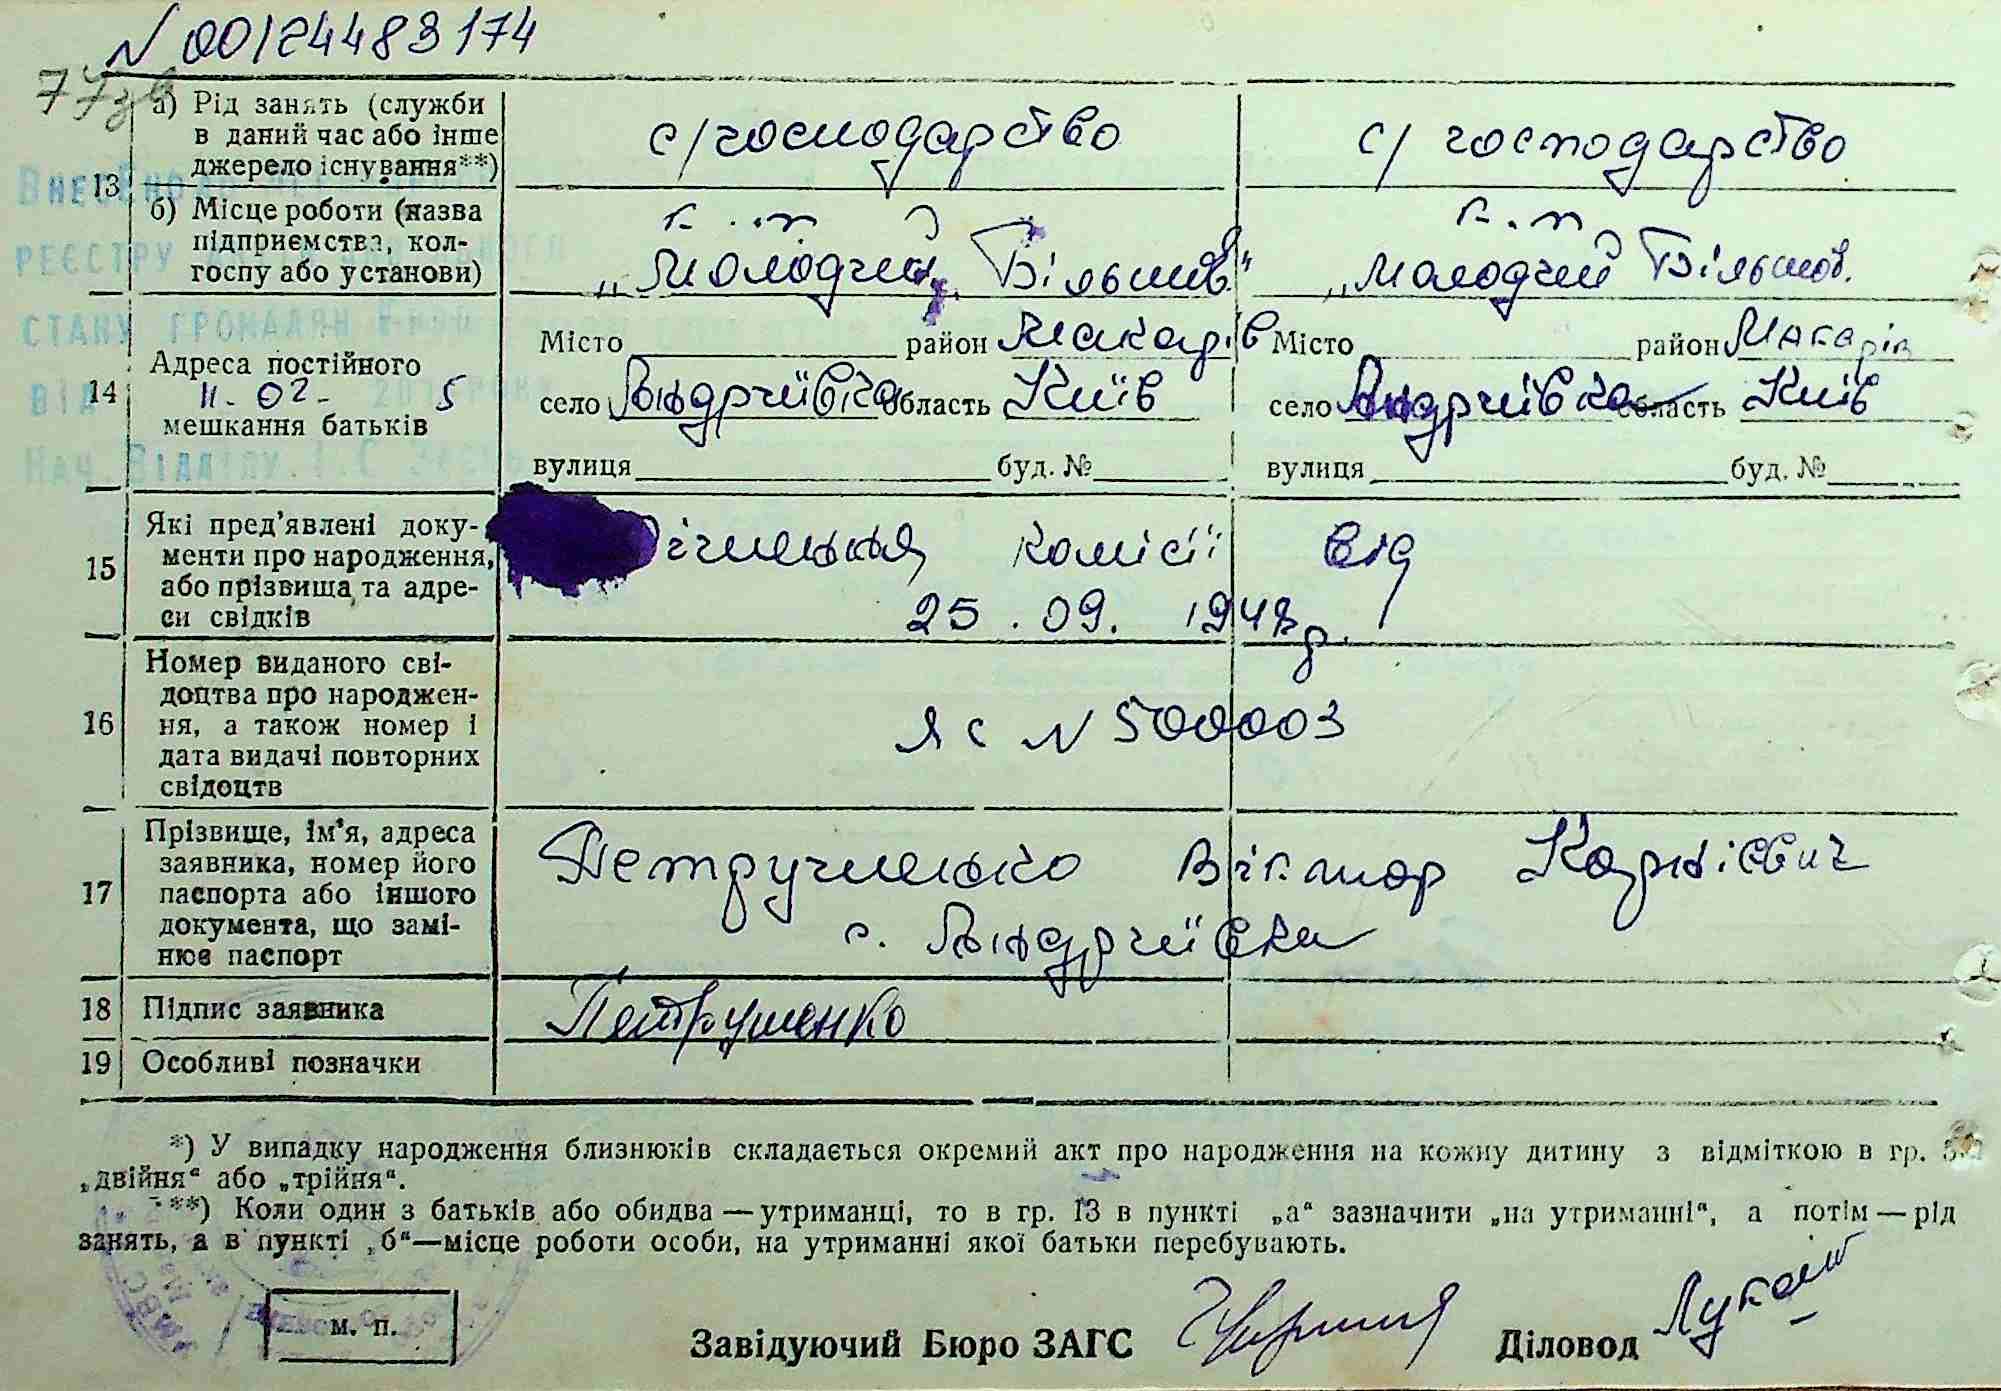 N 00124483174
13 а) Рід занять (служби в даний час або інше джерело існування**)
с/господарство
с/господарство
б) Місце роботи (назва підприємства, колгоспу або установи)
к.п.
„Молодчий Більшов."
к.п.
„Молодчий Більшов.
14 Адреса постійного
11-02- 5
мешкання батьків
Місто район Макарів
село Андріївка область Київ
вулиця буд. №
Місто район Макарів
село Андріївка область Київ
вулиця буд. №
15 Які пред'явлені документи про народження, або прізвища та адреси свідків
комісії від
25.09.1947 р.
16 Номер виданого свідоцтва про народження, а також номер і дата видачі повторних свідоцтв
ЯС N 500003
17 Прізвище, ім'я, адреса заявника, номер його паспорта або іншого документа, що замінює паспорт
Петрушенко Віктор Карпієвич
с. Андріївка
18 Підпис заявника
Петрушенко
19 Особливі позначки
*) У випадку народження близнюків складається окремий акт про народження на кожну дитину з відміткою в гр.
„двійня" або „трійня".
**) Коли один з батьків або обидва — утриманці, то в гр. 13 в пункті „а" зазначити „на утриманні", а потім — рід
занять, а в пункті „б"—місце роботи особи, на утриманні якої батьки перебувають.
м. п.
Завідуючий Бюро ЗАГС
Діловод